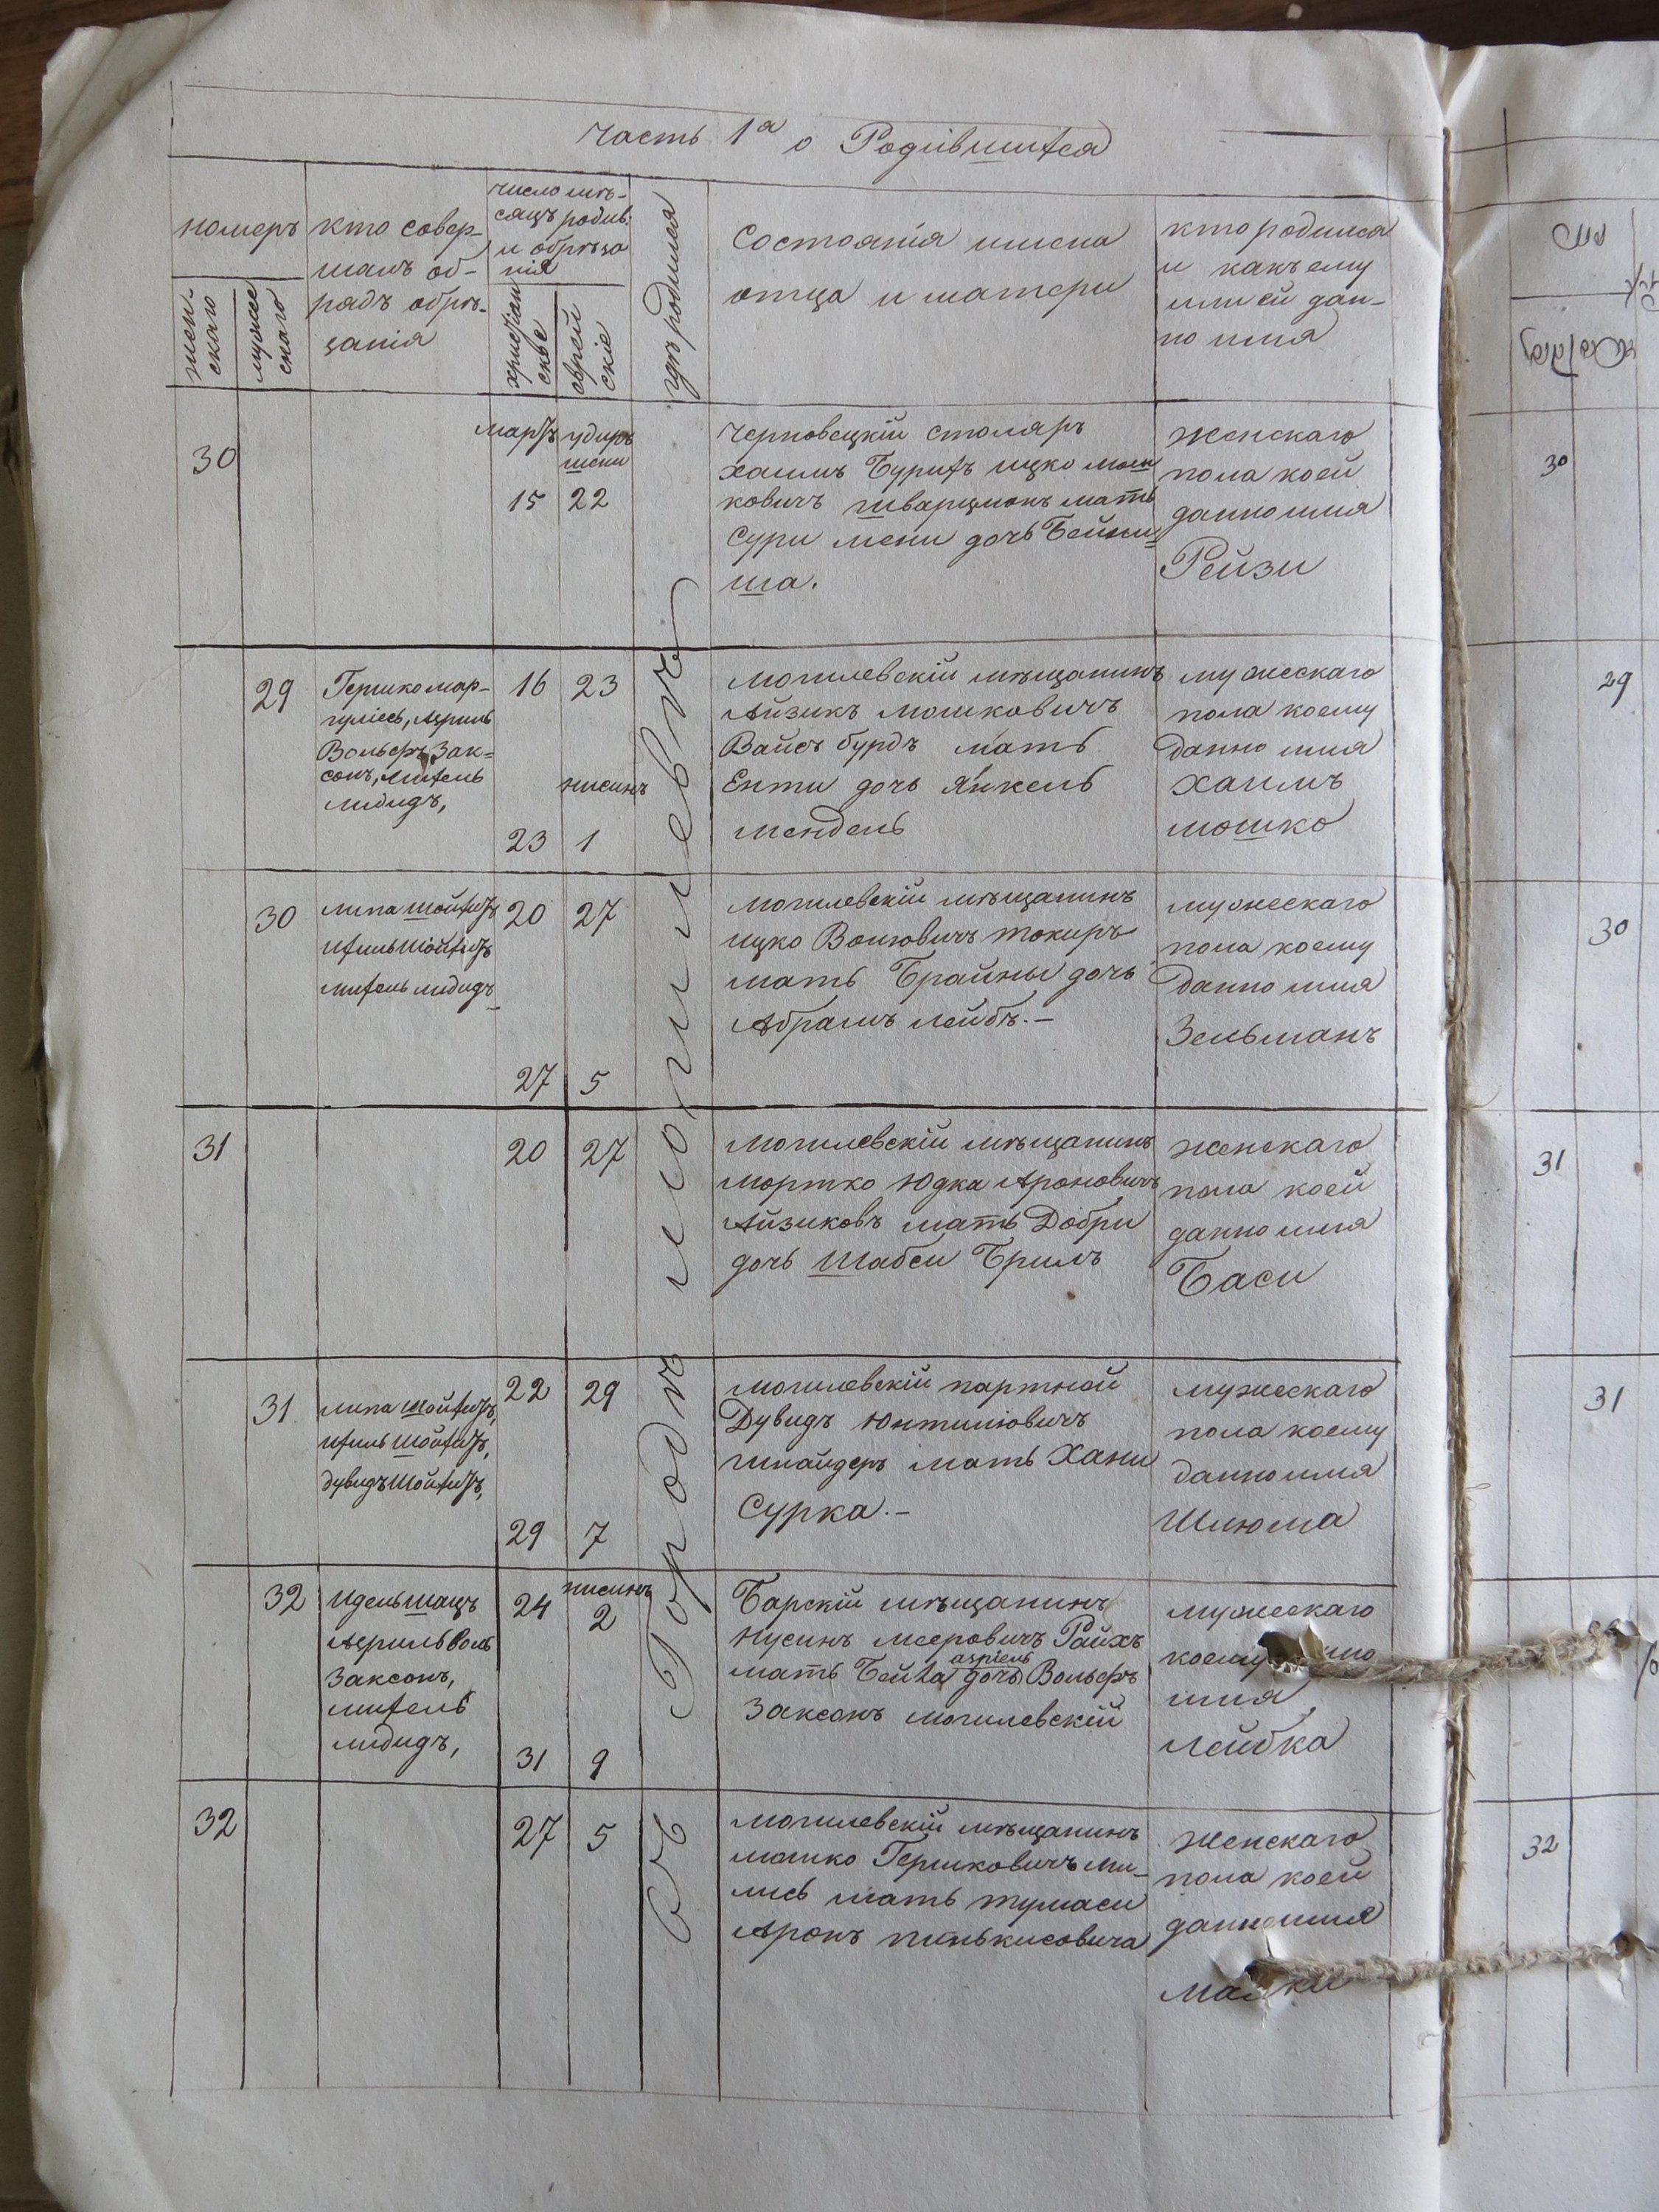 Часть 1я о Родившихся
номеръ
женскаго
мужескаго
кто совер-
шалъ об-
рядъ обрѣ-
занія
число мѣ-
сяцъ родив.
и обрѣза
нія
христіан
скіе
еврей
скіе
гдѣ родился
Состоянія имена
отца и матери
кто родился
и какъ ему
или ей дан-
но имя
въ Городѣ могилевѣ
30
мартъ
15 22
Черновецкій столяръ
хаимъ Бурихъ ицко мош
ковичъ шварцмонъ мать
Сури мени дочь Бейни
ша.
женскаго
пола коей
данно имя
Рейзи
29
Гершко мар-
гуліесъ, Азриль
Вольфъ Зак-
сонъ, михель
мидидъ,
16 23
нисинъ
23 1
могилевскій мѣщанинъ
Айзикъ мошковичъ
Вайсъ бурдъ мать
Енти дочь Янкель
мендель
мужескаго
пола коему
данно имя
хаимъ
мошко
30
липа шойхетъ
ихиль шойхетъ
михель мидидъ
20 27
27 5
могилевскій мѣщанинъ
ицко Волковичъ токиръ
мать Брайны дочь
Абрамъ лейбъ.-
мужескаго
пола коему
данно имя
Зельманъ
31
20 27
могилевскій мѣщанинъ
мортко Юдка Ароновичъ
Айзиковъ мать Добри
дочь Шабси Бримъ
женскаго
пола коей
данно имя
Баси
31
липа шойхетъ,
ихиль шойхетъ,
дувидъ шойхетъ,
22 29
29 7
могилевскій партной
Дувидъ Юнтиліовичъ
шнайдеръ мать Хани
Сурка.-
мужескаго
пола коему
данно имя
Шліома
32
Идель шацъ
Азриль воль
Заксонъ,
михель
мидидъ,
24 нисинъ
2
31 9
Барскій мѣщанинъ
нусинъ мееровичъ Райхъ
азріель
мать Бейла дочь Вольфъ
Заксонъ могилевскій
мужескаго
коему
имя
лейбка
32
27 5
могилевскій мѣщанинъ
мошко Гершковичъ Ми-
лисъ мать тумаси
Аронъ пинькисовича
женскаго
пола коей
данно имя
30
29
30
31
31
32